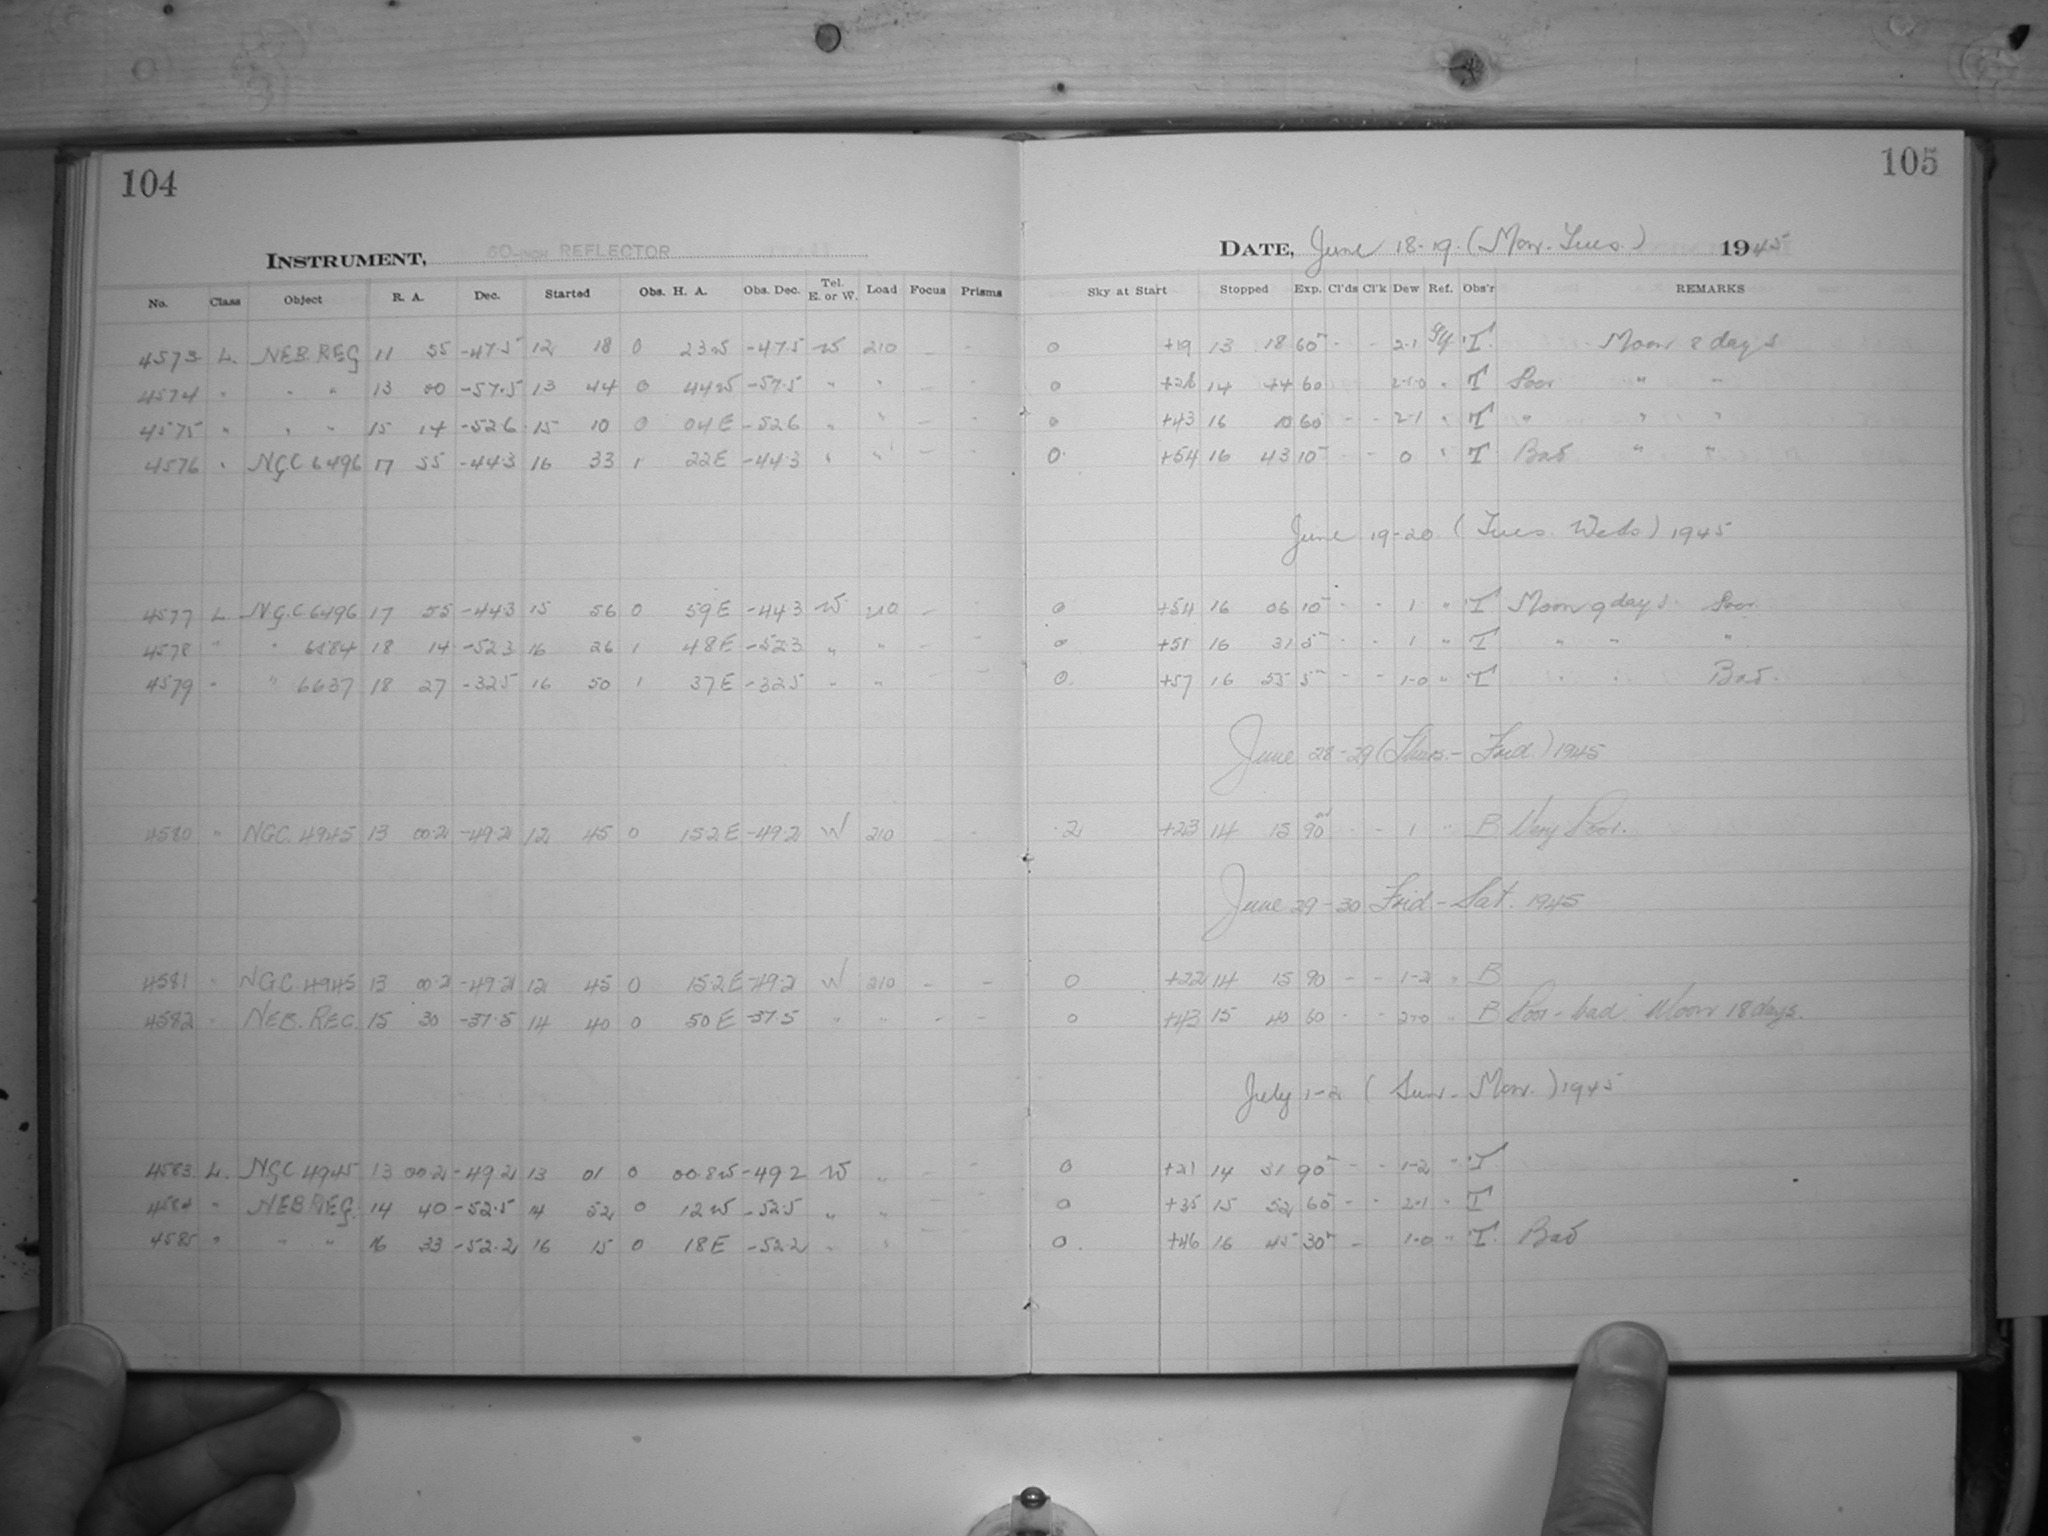 104
105
INSTRUMENT, 60-INCH REFLECTOR
DATE, June 18-19. (Mon. Tues.) 1945
No. Class Object R. A. Dec. Started Obs. H. A. Obs. Dec. Tel. E. or W. Load Focus Prisms Sky at Start Stopped Exp. Cl'ds Cl'k Dew Ref. Obs'r REMARKS
4573 L. NEB. REG 11 55 -47.5 12 18 0 23W -47.5 W 210 - - 0 +19 13 18 60m - - 2-1 T. Moon 8 days
4574 " " " 13 00 -57.5 13 44 0 44W -57.5 " " - - 0 14 44 60 T Poor " "
4575 " " " 15 14 -52.6 15 10 0 04E -52.6 " " - - 0 +43 16 10 60 - - 2-1 " T " " "
4576 " NGC 6496 17 55 -44.3 16 33 1 22E -44.3 " " - - 0. +54 16 43 10m - - 0 " T Bad " "
June 19-20 (Tues. Weds.) 1945
4577 L. N.G.C 6496 17 55 -44.3 15 56 0 59E -44.3 W 210 - - 0 +54 16 06 10m - - 1 " T Moon 9 days. Poor
4578 " " 6584 18 14 -52.3 16 26 1 48E -52.3 " " - - 0 +51 16 31 5m - - 1 " T " " "
4579 " " 6637 18 27 -32.5 16 50 1 37E -32.5 " " - - 0. +57 16 55 5m - - 1-0 " T " " Bad.
June 28-29 (Thurs.- Frid.) 1945
4580 " NGC. 4945 13 00.2 -49.2 12 45 0 15.2E -49.2 W 210 - - 2 +23 14 15 90m - - 1 " B Very Poor.
June 29-30 Frid-Sat. 1945
4581 " NGC 4945 13 00.2 -49.2 12 45 0 15.2E -49.2 W 210 - - 0 +22 14 15 90 - - 1-2 " B
4582 " NEB. REG. 15 30 -37.5 14 40 0 50E -37.5 " " - - 0 +43 15 40 60 - - 2-0 " B Poor-bad Moon 18 days.
July 1-2 (Sun.-Mon.) 1945
4583 L. NGC 4945 13 00.2 -49.2 13 01 0 00.8W -49.2 W " - - 0 +21 14 31 90m - - 1-2 " T
4584 " NEB REG. 14 40 -52.5 14 52 0 12W -52.5 " " - - 0 +35 15 52 60 - - 2-1 " T
4585 " " " 16 33 -52.2 16 15 0 18E -52.2 " " - - 0. +46 16 45 30m - 1-0 " T. Bad